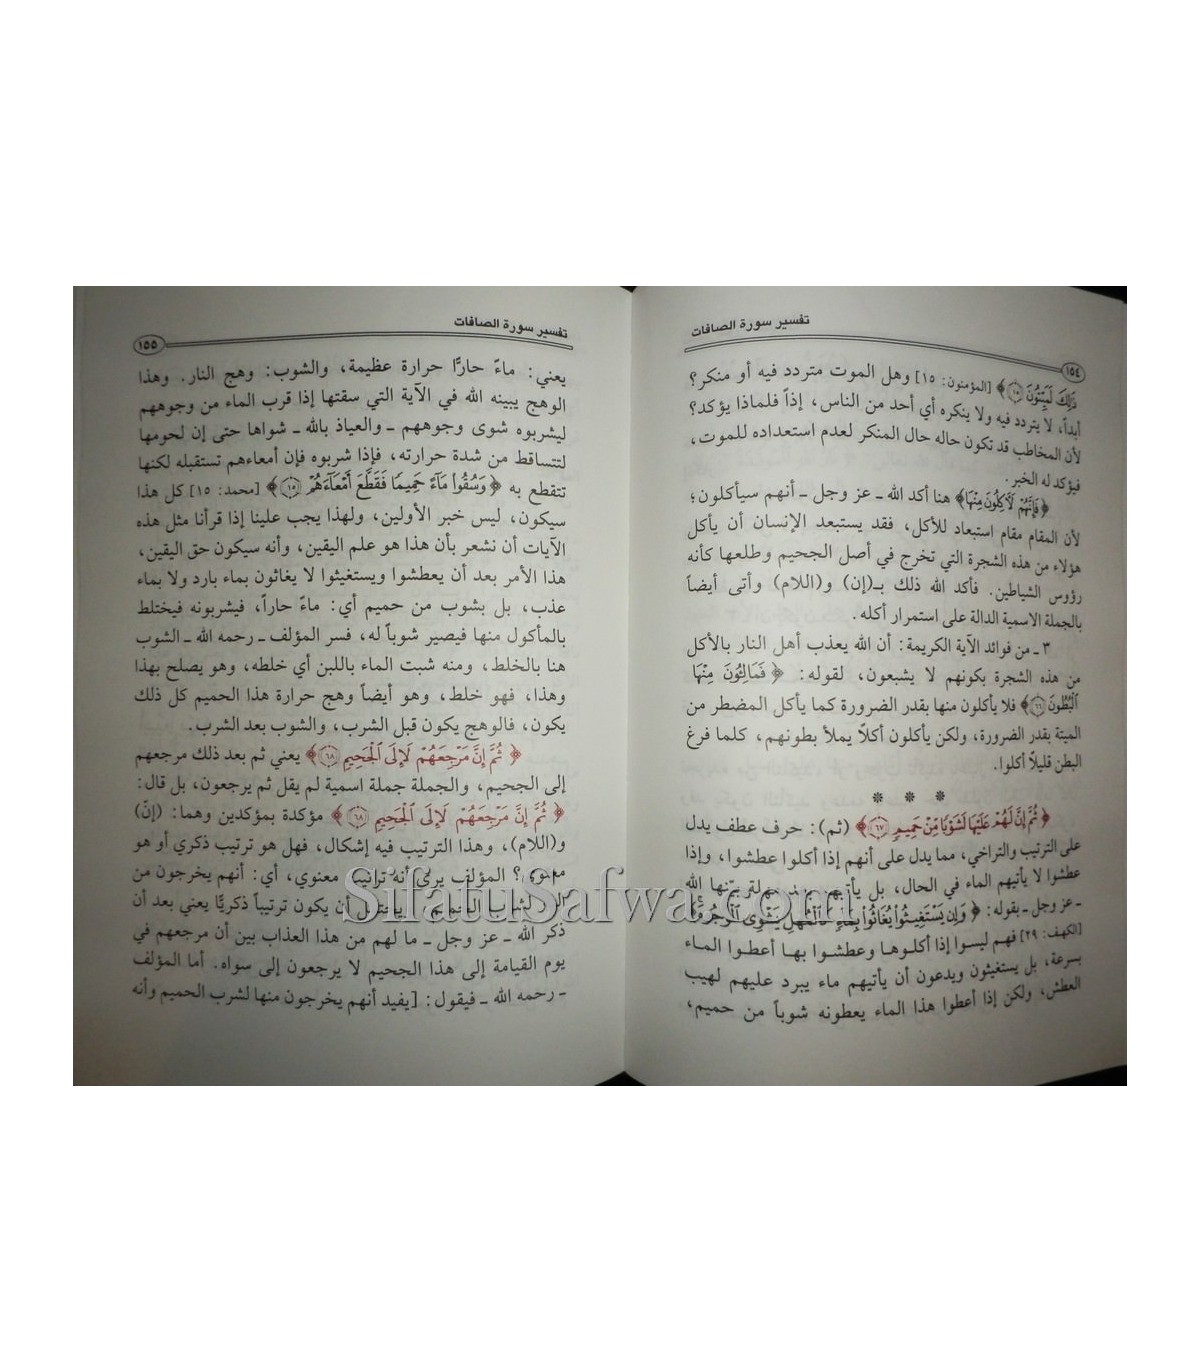 تفسير سورة الصافات
١٥٤
ذَٰلِكَ لَمَيِّتُونَ ﴿١٥﴾ [المؤمنون: ١٥] وهل الموت متردد فيه أو منكر؟
أبداً، لا يتردد فيه ولا ينكره أي أحد من الناس، إذاً فلماذا يؤكد؟
لأن المخاطب قد تكون حاله حال المنكر لعدم استعداده للموت،
فيؤكد له الخبر.
﴿فَإِنَّهُمْ لَآكِلُونَ مِنْهَا﴾ هنا أكد الله ـ عز وجل ـ أنهم سيأكلون؛
لأن المقام مقام استبعاد للأكل، فقد يستبعد الإنسان أن يأكل
هؤلاء من هذه الشجرة التي تخرج في أصل الجحيم وطلعها كأنه
رؤوس الشياطين. فأكد الله ذلك بـ(إن) و(اللام) وأتى أيضاً
بالجملة الاسمية الدالة على استمرار أكله.
٣ ـ من فوائد الآية الكريمة: أن الله يعذب أهل النار بالأكل
من هذه الشجرة بكونهم لا يشبعون، لقوله: ﴿فَمَالِـُٔونَ مِنْهَا
ٱلْبُطُونَ ﴿٦٦﴾ فلا يأكلون منها بقدر الضرورة كما يأكل المضطر من
الميتة بقدر الضرورة، ولكن يأكلون أكلاً يملأ بطونهم، كلما فرغ
البطن قليلاً أكلوا.
* * *
﴿ثُمَّ إِنَّ لَهُمْ عَلَيْهَا لَشَوْبًا مِّنْ حَمِيمٍ ﴿٦٧﴾ (ثم): حرف عطف يدل
على الترتيب والتراخي، مما يدل على أنهم إذا أكلوا عطشوا، وإذا
عطشوا لا يأتيهم الماء في الحال، بل يأتيهم بعد مهلة بيّنها الله
ـ عز وجل ـ بقوله: ﴿وَإِن يَسْتَغِيثُوا۟ يُغَاثُوا۟ بِمَآءٍ كَٱلْمُهْلِ يَشْوِى ٱلْوُجُوهَ﴾
[الكهف: ٢٩] فهم ليسوا إذا أكلوها وعطشوا بها أعطوا الماء
بسرعة، بل يستغيثون ويدعون أن يأتيهم ماء يبرد عليهم لهيب
العطش، ولكن إذا أعطوا هذا الماء يعطونه شوباً من حميم،
تفسير سورة الصافات
١٥٥
يعني: ماءً حارًّا حرارة عظيمة، والشوب: وهج النار. وهذا
الوهج يبينه الله في الآية التي سقتها إذا قرب الماء من وجوههم
ليشربوه شوى وجوههم ـ والعياذ بالله ـ شواها حتى إن لحومها
لتتساقط من شدة حرارته، فإذا شربوه فإن أمعاءهم تستقبله لكنها
تتقطع به ﴿وَسُقُوا۟ مَآءً حَمِيمًا فَقَطَّعَ أَمْعَآءَهُمْ ﴿١٥﴾ [محمد: ١٥] كل هذا
سيكون، ليس خبر الأولين، ولهذا يجب علينا إذا قرأنا مثل هذه
الآيات أن نشعر بأن هذا هو علم اليقين، وأنه سيكون حق اليقين،
هذا الأمر بعد أن يعطشوا ويستغيثوا لا يغاثون بماء بارد ولا بماء
عذب، بل بشوب من حميم أي: ماءً حاراً، فيشربونه فيختلط
بالمأكول منها فيصير شوباً له، فسر المؤلف ـ رحمه الله ـ الشوب
هنا بالخلط، ومنه شبت الماء باللبن أي خلطه، وهو يصلح بهذا
وهذا، فهو خلط، وهو أيضاً وهج حرارة هذا الحميم كل ذلك
يكون، فالوهج يكون قبل الشرب، والشوب بعد الشرب.
﴿ثُمَّ إِنَّ مَرْجِعَهُمْ لَإِلَى ٱلْجَحِيمِ ﴿٦٨﴾ يعني ثم بعد ذلك مرجعهم
إلى الجحيم، والجملة جملة اسمية لم يقل ثم يرجعون، بل قال:
﴿ثُمَّ إِنَّ مَرْجِعَهُمْ لَإِلَى ٱلْجَحِيمِ ﴿٦٨﴾ مؤكدة بمؤكدين وهما: (إنّ)
و(اللام)، وهذا الترتيب فيه إشكال، فهل هو ترتيب ذكري أو هو
معنوي؟ المؤلف يرى أنه ترتيب معنوي، أي: أنهم يخرجون من
النار لشرب الحميم، ويحتمل أن يكون ترتيباً ذكريًّا يعني بعد أن
ذكر الله ـ عز وجل ـ ما لهم من هذا العذاب بين أن مرجعهم في
يوم القيامة إلى هذا الجحيم لا يرجعون إلى سواه. أما المؤلف
ـ رحمه الله ـ فيقول: [يفيد أنهم يخرجون منها لشرب الحميم وأنه
SifatuSafwa.com